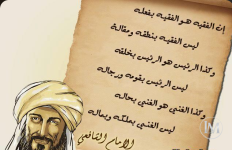 إن الفقيه هو الفقيه بفعله
ليس الفقيه بنطقه ومقاله
وكذا الرئيس هو الرئيس بخلقه
ليس الرئيس بقومه ورجاله
وكذا الغني هو الغني بحاله
ليس الغني بملكه وبماله
الإمام الشافعي